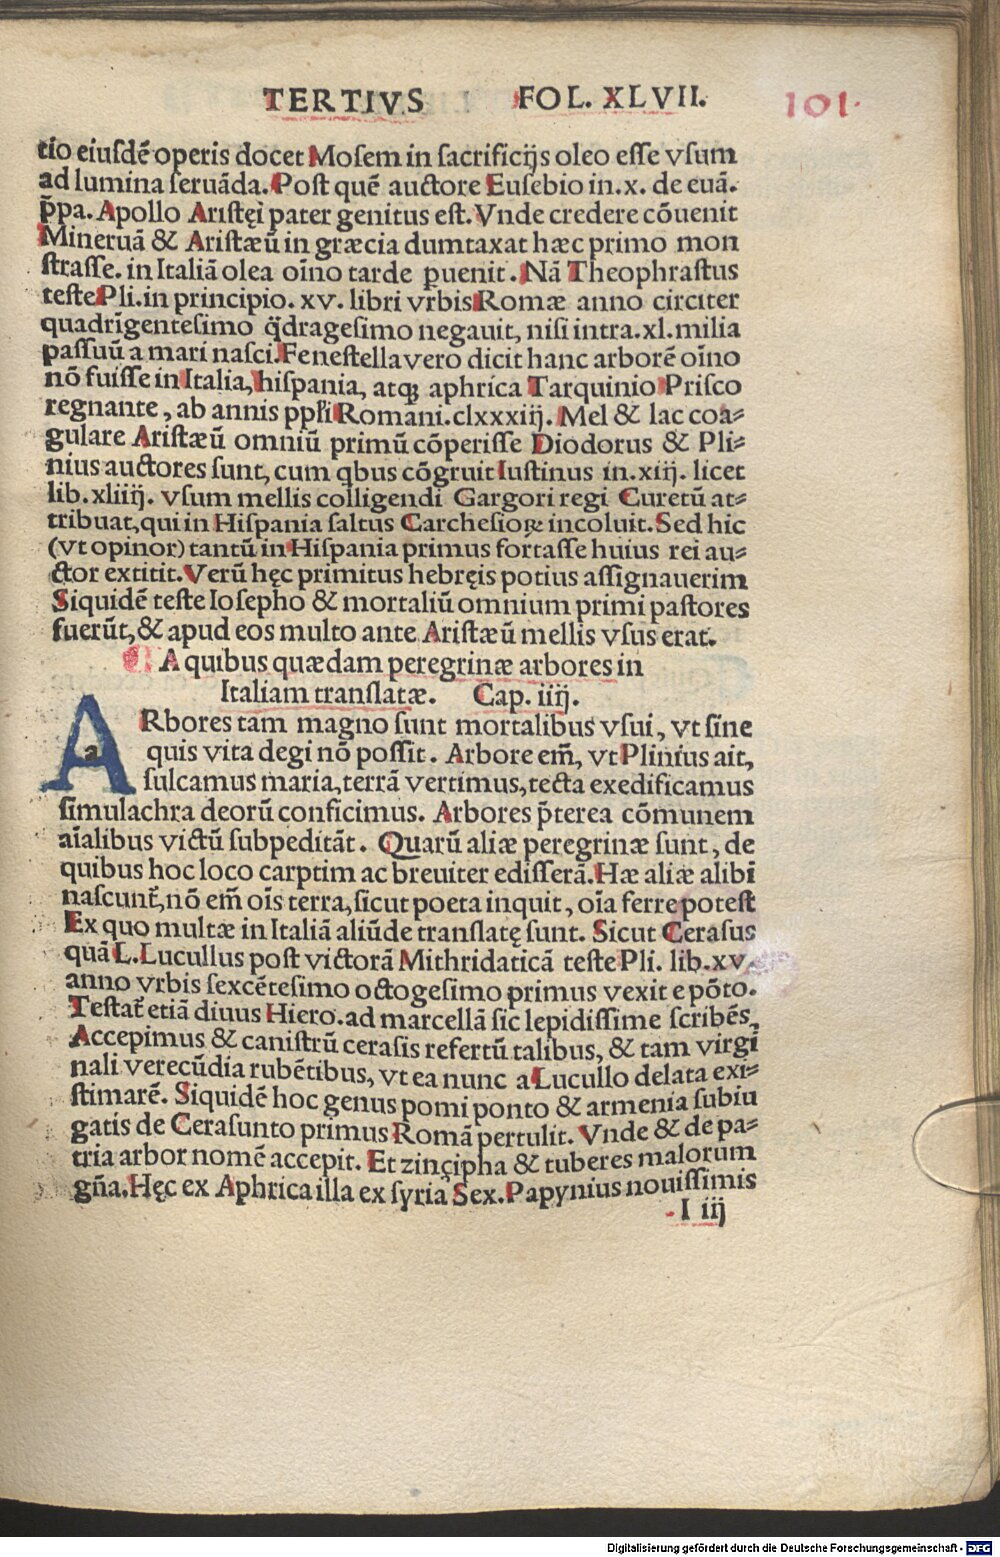 TERTIVS FOL. XLVII. 101.
tio eiuſdē operis docet Moſem in ſacrificijs oleo eſſe vſum
ad lumina ſeruāda. Poſt quē auctore Euſebio in .x. de euā.
p̄pa. Apollo Ariſtęi pater genitus eſt. Vnde credere cōuenit
Mineruā & Ariſtæū in græcia dumtaxat hæc primo mon
ſtraſſe. in Italiā olea oīno tarde ꝑuenit. Nā Theophraſtus
teſte Pli. in principio .xv. libri vrbis Romæ anno circiter
quadrīgenteſimo q̄dragefimo negauit, niſi intra .xl. milia
paſſuū a mari naſci. Feneſtella vero dicit hanc arborē oīno
nō fuiſſe in Italia, hiſpania, atqꝫ aphrica Tarquinio Priſco
regnante, ab annis ppłi Romani .clxxxiij. Mel & lac coa⸗
gulare Ariſtæū omniū primū cōperiſſe Diodorus & Pli⸗
nius auctores ſunt, cum qbus cōgruit Iuſtinus in .xiij. licet
lib. xliiij. vſum mellis colligendi Gargori regi Curetū at⸗
tribuat, qui in Hiſpania ſaltus Carcheſioꝝ incoluit. Sed hic
(vt opinor) tantū in Hiſpania primus fortaſſe huius rei au⸗
ctor extitit. Verū hęc primitus hebręis potius aſſignauerim
Siquidē teſte Ioſepho & mortaliū omnium primi paſtores
fuerūt, & apud eos multo ante Ariſtæū mellis vſus erat.
¶ A quibus quædam peregrinæ arbores in
Italiam tranſlatæ. Cap. iiij.
ARbores tam magno ſunt mortalibus vſui, vt ſine
quis vita degi nō poſſit. Arbore em̄, vt Plinius ait,
ſulcamus maria, terrā vertimus, tecta exedificamus
ſimulachra deorū conficimus. Arbores p̄terea cōmunem
aīalibus victū ſubpeditāt. Quarū aliæ peregrinæ ſunt, de
quibus hoc loco carptim ac breuiter ediſſerā. Hæ aliæ alibi
naſcunt᷑, nō em̄ oīs terra, ſicut poeta inquit, oīa ferre poteſt
Ex quo multæ in Italiā aliūde tranſlatę ſunt. Sicut Ceraſus
quā L. Lucullus poſt victorā Mithridaticā teſte Pli. lib. xv.
anno vrbis ſexcēteſimo octogeſimo primus vexit e pōto.
Teſtat᷑ etiā diuus Hiero. ad marcellā ſic lepidiſſime ſcribēs,
Accepimus & caniſtrū ceraſis refertū talibus, & tam virgi
nali verecūdia rubētibus, vt ea nunc a Lucullo delata exi⸗
ſtimarē. Siquidē hoc genus pomi ponto & armenia ſubiu
gatis de Ceraſunto primus Romā pertulit. Vnde & de pa⸗
tria arbor nomē accepit. Et zinçipha & tuberes malorum
gn̄a. Hęc ex Aphrica illa ex ſyria Sex. Papynius nouiſſimis
I iij
Digitalisierung gefördert durch die Deutsche Forschungsgemeinschaft - DFG